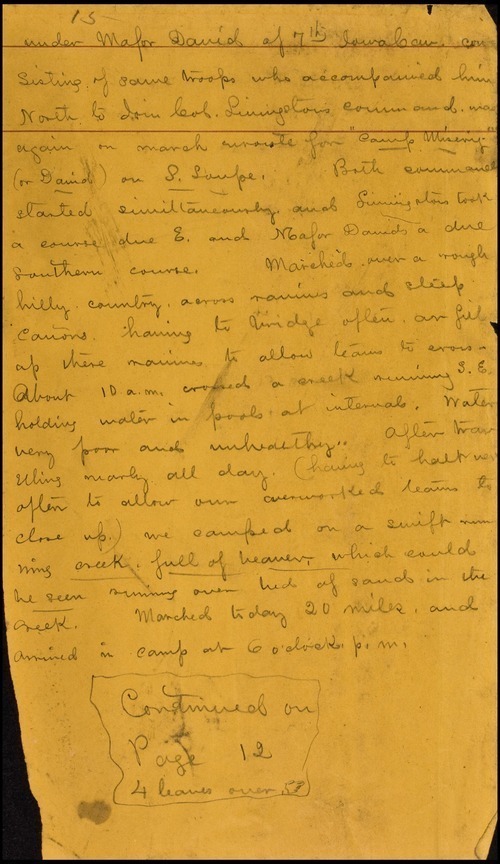 15
under Major David of 7th Iowa Cav. con
sisting of same troops who accompanied him
North to Join Col. Livingstons command, was
again on march enroute for "Camp Misery"
(or David) on S. Loupe. Both commands
started simultaneously and Livingstons took
a course due E. and Major Davids a due
Southern course. Marched over a rough
hilly country, across ravines and steep
canons. having to bridge often or fill
up these ravines to allow teams to cross.
About 10 a.m. crossed a creek running S.E.
holding water in pools at internals. Water
very poor and unhealthy. After trav
elling nearly all day (having to halt very
often to allow our overworked teams to
close up.) we camped on a swift run
ning creek, full of beaver, which could
be seen running over bed of sand in the
creek. Marched today 20 miles, and
arrived in camp at 6 o'clock p.m.
Continued on
Page 12
4 leaves over